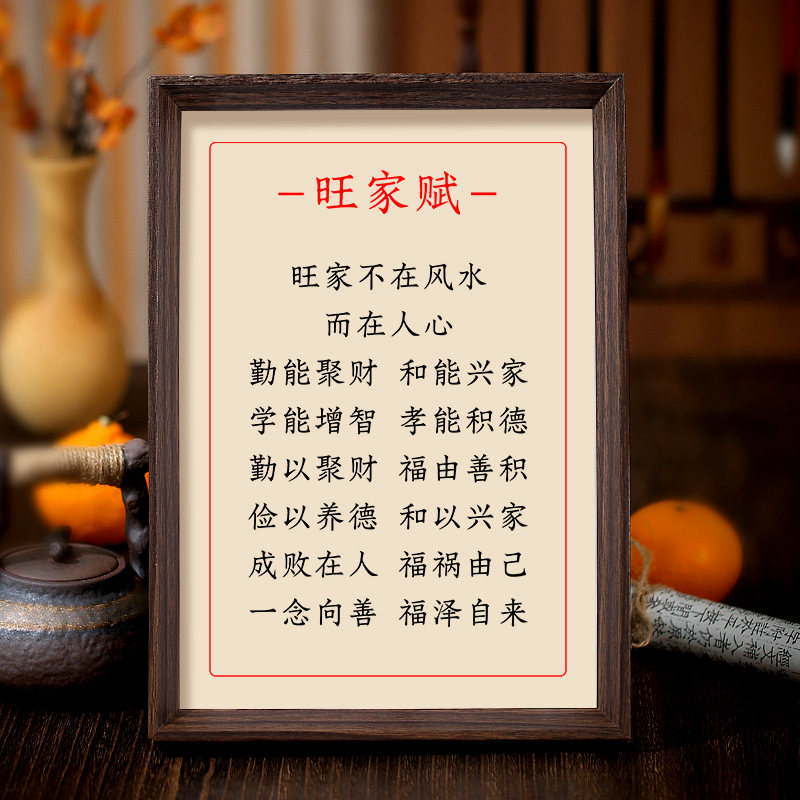 －旺家赋－
旺家不在风水
而在人心
勤能聚财 和能兴家
学能增智 孝能积德
勤以聚财 福由善积
俭以养德 和以兴家
成败在人 福祸由己
一念向善 福泽自来